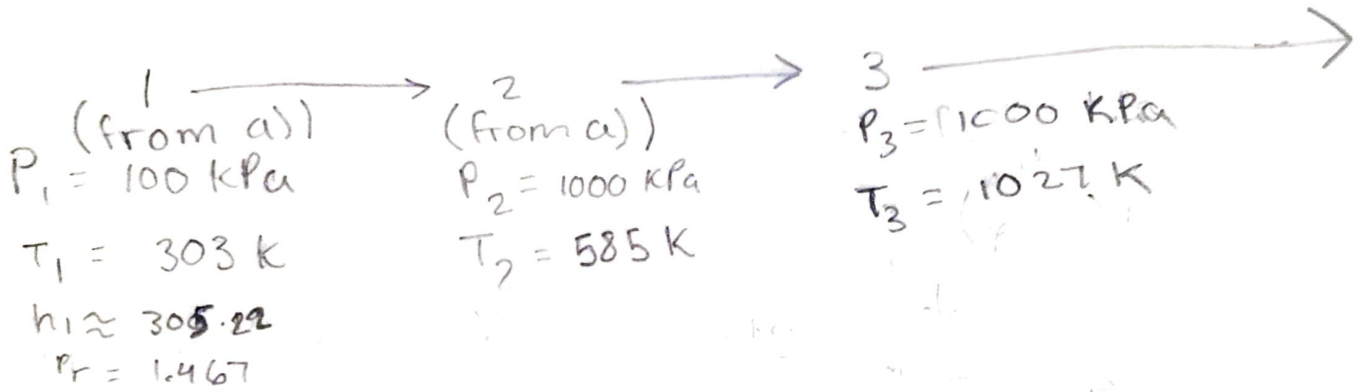 1 → 2 → 3 →
(from a))
P₁ = 100 kPa
T₁ = 303 K
h₁ ≈ 305.22
Pr = 1.467
(from a))
P₂ = 1000 KPa
T₂ = 585 K
P₃ = 1000 KPa
T₃ = 1027 K